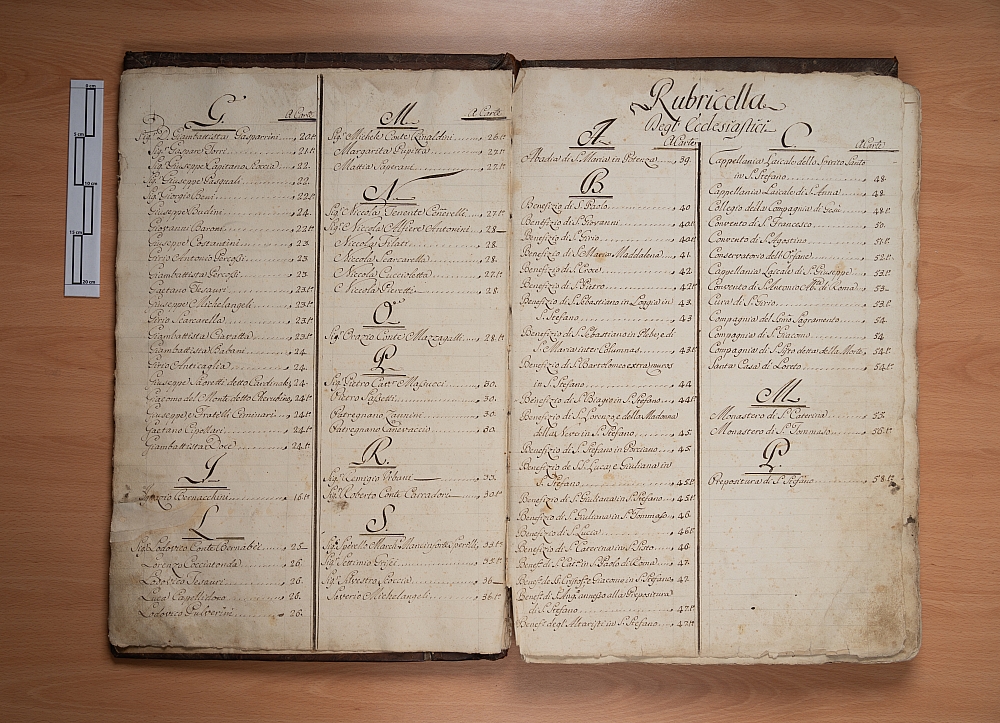 G.
A Carte
Sig.r Giambattista Gasparrini 20.t
Sig.r Gaspare Ebrri 21.t
Sig.r Giuseppe Capitano Roccia 22.
Sig.r Giuseppe Pasquali 22.
Sig.r Giorgio Beni 22.t
Giuseppe Budini 24.
Giovanni Baroni 22.t
Giuseppe Costantini 23
Girio Antonio Percossi 23.
Giambattista Percossi 23
Gaetano Tesauri 23.t
Giuseppe Michelangeli 23.t
Girio Scarcella 23.t
Giambattista Giavatta 23.t
Giambattista Babani 24
Girio Anticaglia 24.
Giuseppe Moretti detto Cardinale 24.
Giacomo del Monte detto Cherubino 24.t
Giuseppe e Fratelli Ciminari 24.t
Gaetano Cipollari 24.t
Giambattista Doce 24.t
I
Ignazio Bernacchini 16.t
L
Sig.r Lodovico Conte Bernabei 25
Lorenzo Cocciatonda 26.
Lodovico Tesauri 26.
Luca Cagellidono 26.
Lodovico Pulverini 26.
M.
A Carte
Sig.r Michele Conte Rinaldini 26.t
Margarita Pupitta 27.t
Mattia Caprani 27.t
N.
Sig.r Niccola Tenente Cenerelli 27.t
Sig.r Niccola Alfiere Antonini 28
Niccola Filati 28.
Niccola Scarcella 28.
Niccola Cuccioletta 27.t
Niccola Pieretti 28
O.
Sig.r Orazio Conte Mazzagalli 28.t
P.
Sig.r Pietro Cav.r Majucci 30.
Piero Sassetti 30.
Patregnano Zannini 30.
Patregnano Canevaccio 30.
R.
Sig.r Remigio Urbani 33.
Sig.r Roberto Conte Carradori 30.t
S.
Sig.r Sperello March. Mancinforte Sperelli 33.t
Sig.r Settimio Grisei 35.t
Sig.r Silvestro Roccia 36
Saverio Michelangeli 36.t
Rubricella
Degl' Ecclesiastici
A
A Carte
Abadia di S. Maria in Potenza 39.
B
Benefizio di S. Paolo 40
Benefizio di S. Giovanni 40.t
Benefizio di S. Girio 40.t
Benefizio di S. Maria Maddalena 41.
Benefizio di S. Croce 42.
Benefizio di S. Pietro 42.t
Benefizio di S. Bastiano in Loggia in 43
S. Stefano 43
Benefizio di S. Sebastiano in Plebe e di
S. Maria inter Columnas 43.t
Benefizio di S. Bartolomeo extra muros
in S. Stefano 44
Benefizio di S. Biagio in S. Stefano 44.t
Benefizio di S. Lorenzo e della Madonna
della Neve in S. Stefano 45
Benefizio di S. Stefano in Porciano 45
Benefizio de SS. Luca, e Giuliana in
S. Stefano 45.t
Benefizio di S. Giuliana in S. Stefano 45.t
Benefizio di S. Giuliana in S. Tommaso 46.
Benefizio di S. Lucia 46.t
Benefizio di S. Caterina in S. Sisto 46
Benef.o di S. Cat.a in S. Paolo di Roma 47.
Benef.o de SS. Cristof.o e Giacomo in S. Stefano 42
Benef. di S. Ang. annesso alla Prepositura
di S. Stefano 47.t
Benef. degl' Altaristi in S. Stefano 47.t
C.
A Carte
Cappellania Laicale dello Spirito Santo
in S. Stefano 48.
Cappellania Laicale di S. Anna 48.
Collegio della Compagnia di Gesù 48.t
Convento di S. Francesco 50.
Convento di S. Agostino 51.t
Conservatorio dell' Orfane 52.t
Cappellania Laicale di S. Giuseppe 53.t
Convento di S. Antonio Ab.e di Roma 53
Cura di S. Girio 53.t
Compagnia del SS.mo Sagramento 54.
Compagnia di S. Giacomo 54
Compagnia di S. Ciro detta della Morte 54.t
Santa Casa di Loreto 54.t
M.
Monastero di S. Caterina 55.
Monastero di S. Tommaso 56.t
P.
Prepositura di S. Stefano 58.t
0 cm
5 cm
10 cm
15 cm
20 cm